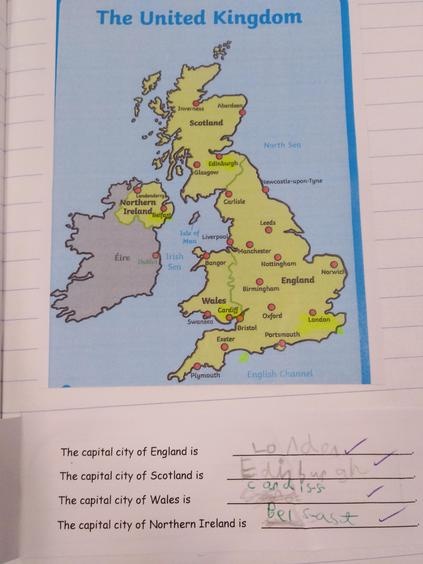 The United Kingdom
Inverness
Aberdeen
Scotland
North Sea
Edinburgh
Glasgow
Newcastle-upon-Tyne
Londonderry
Northern
Ireland
Belfast
Carlisle
Leeds
Isle of
Man
Liverpool
Manchester
Éire
Dublin
Irish
Sea
Bangor
Nottingham
Norwich
England
Birmingham
Wales
Cardiff
Oxford
London
Swansea
Bristol
Portsmouth
Exeter
Plymouth
English Channel
The capital city of England is London.
The capital city of Scotland is Edinburgh.
The capital city of Wales is Cardiss.
The capital city of Northern Ireland is Belsast.